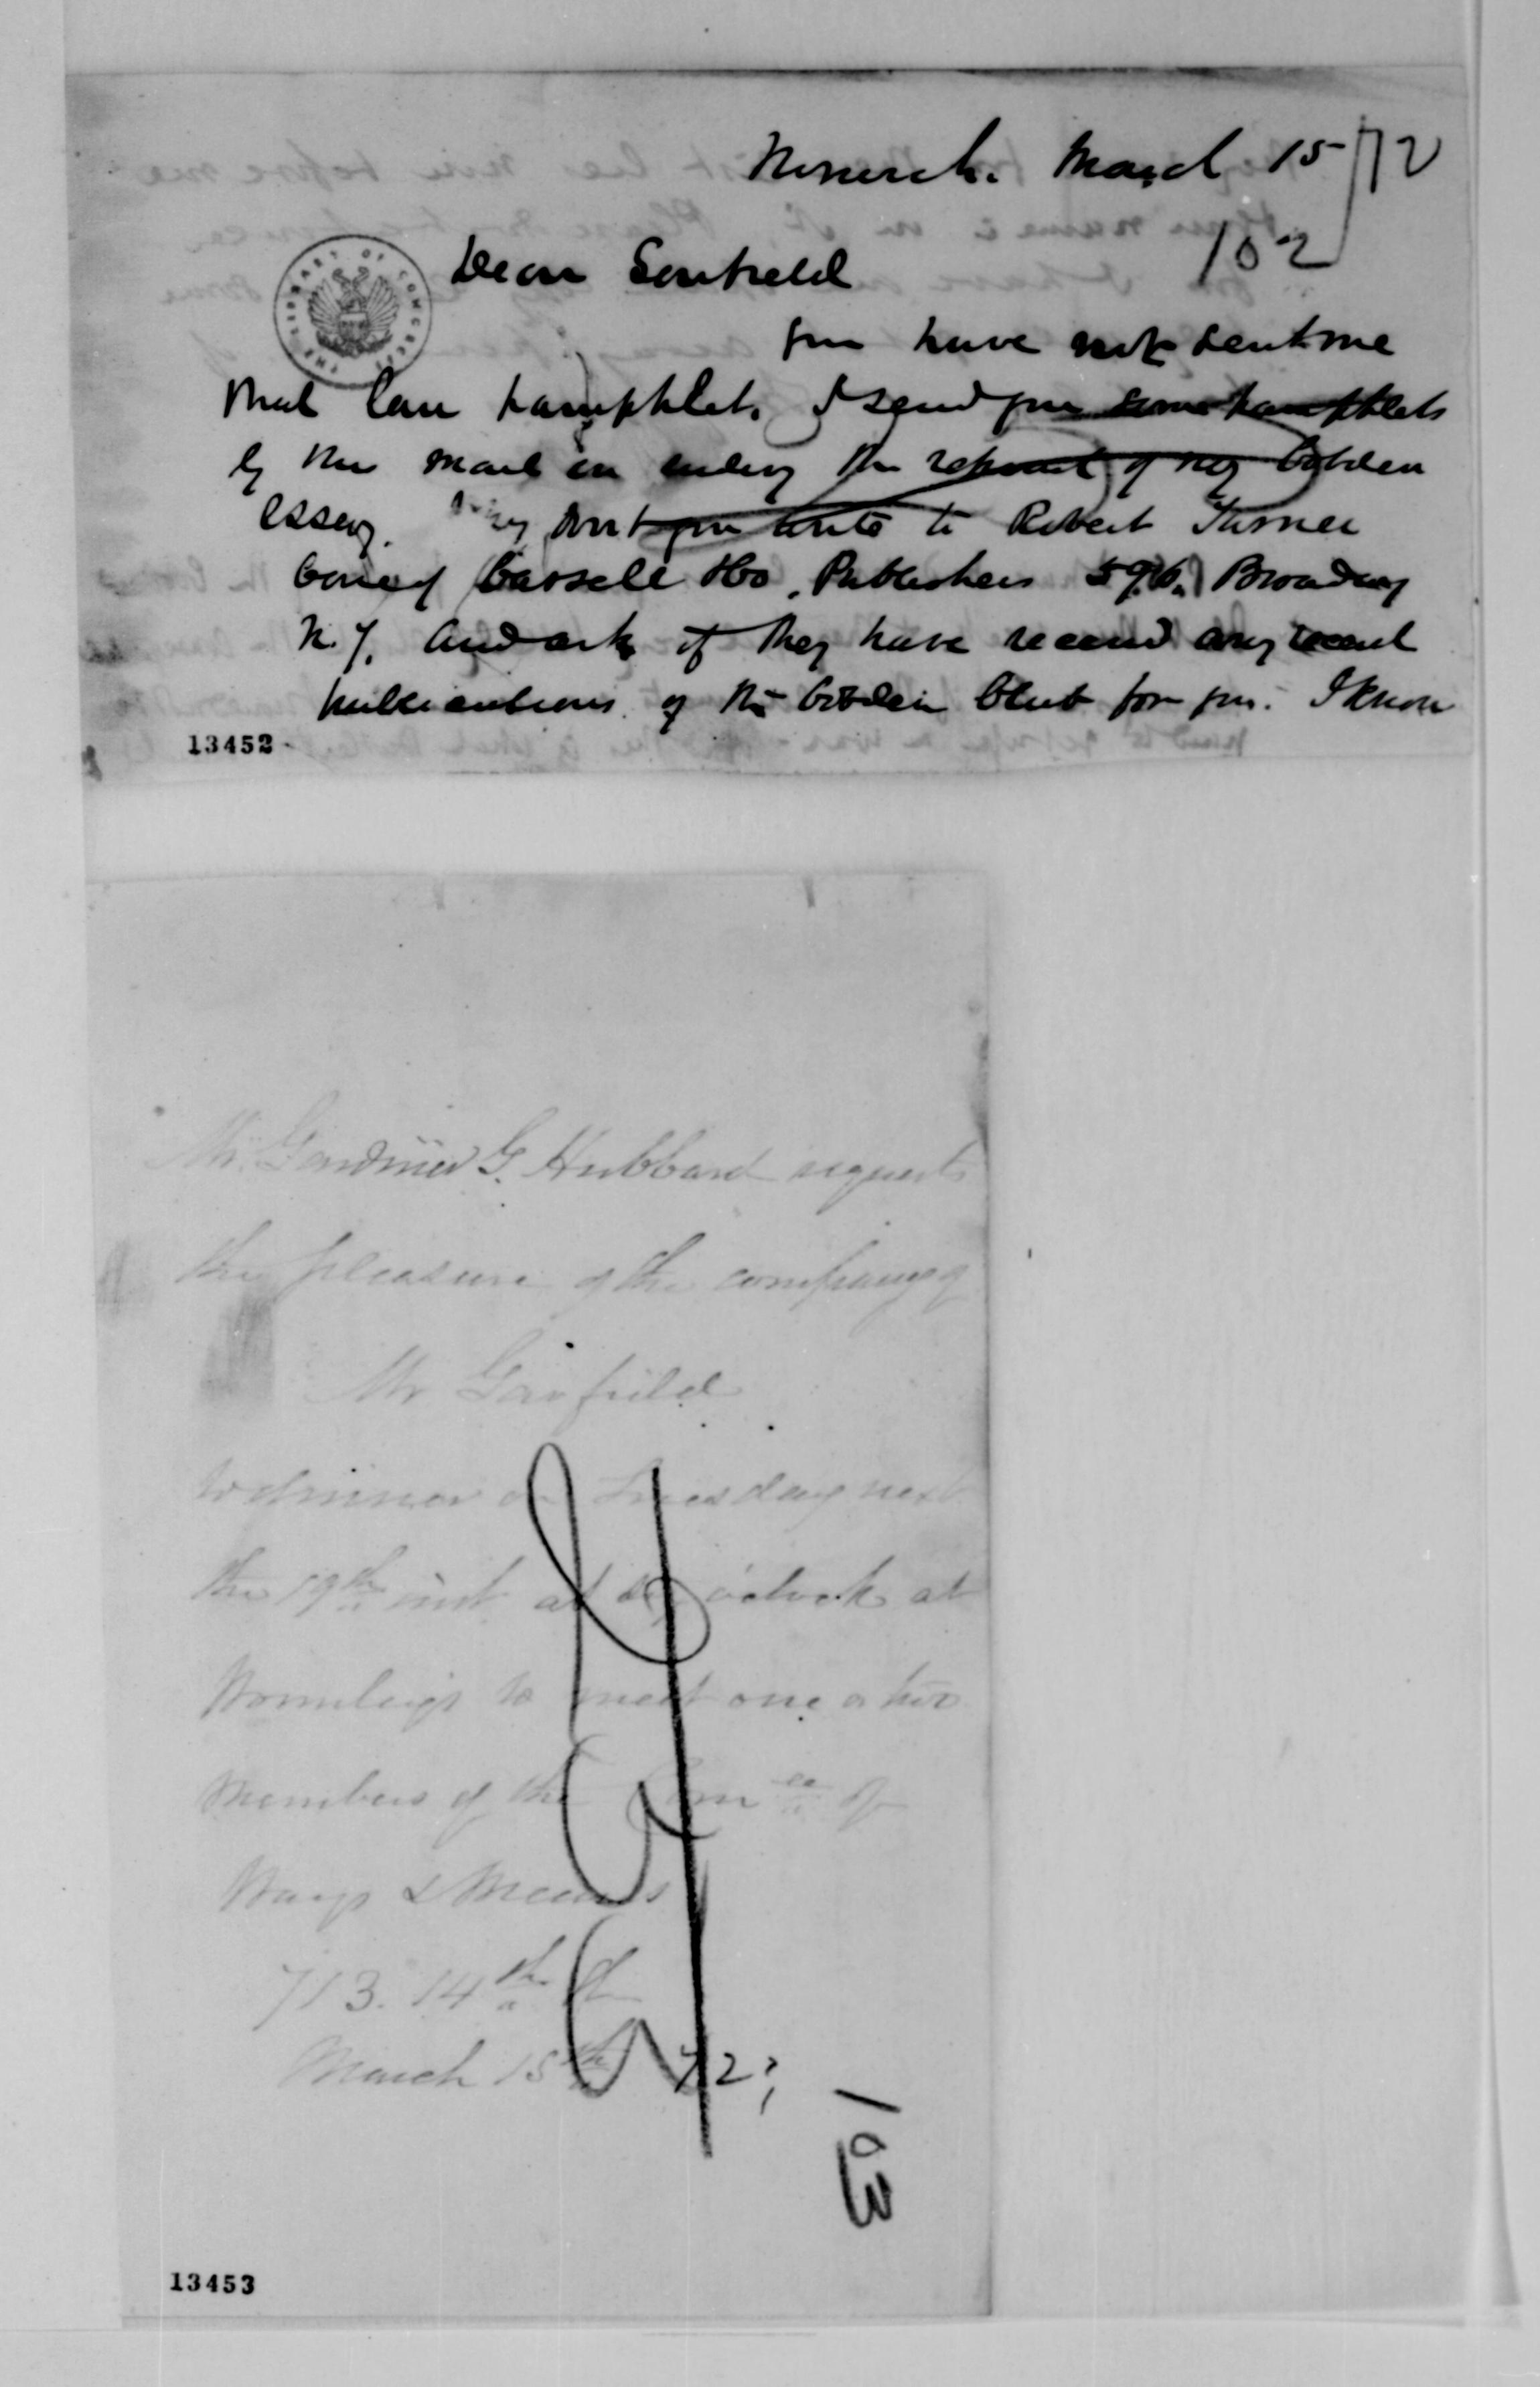 Norwich. March 15/72
102
Dear Garfield
you have not sent me
that law pamphlet. I send you some pamphlets
by this mail including the reprint of my Cobden
essay. Why dont you write to Robert Turner
Care of Cassell & Co, Publishers 596. Broadway
N.Y. and ask if they have received any recent
publications of the Cobden Club for you. I know
THE LIBRARY OF CONGRESS
13452
Mr. Gardiner G. Hubbard requests
the pleasure of the company of
Mr Garfield
to dinner on Tuesday next
the 19th inst at six o'clock at
Wormleys to meet one or two
members of the Com ee of
Ways & Means
713. 14th St
March 15th 72
103
13453